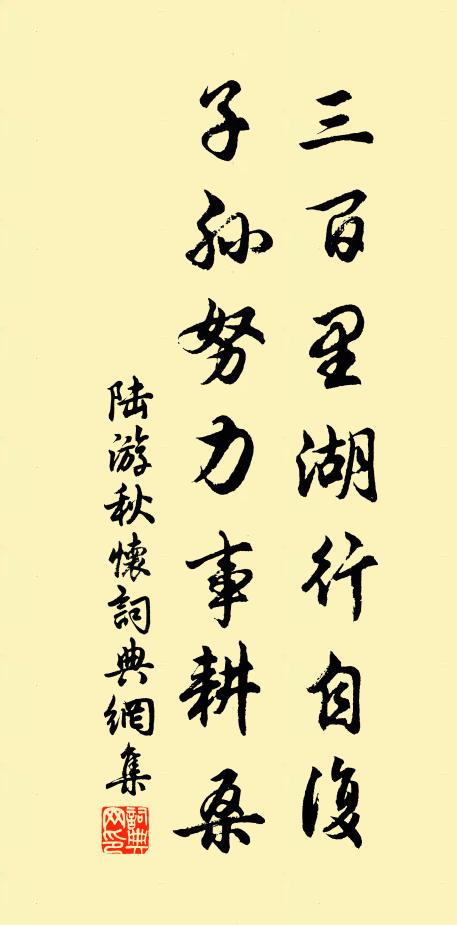 三百里湖行自复
子孙努力事耕桑
陆游秋懷詞典網集
詞典网印